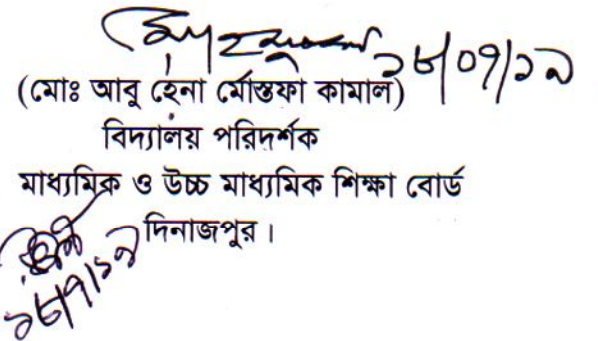 ১৮/০৭/১৯
(মোঃ আবু হেনা মোস্তফা কামাল)
বিদ্যালয় পরিদর্শক
মাধ্যমিক ও উচ্চ মাধ্যমিক শিক্ষা বোর্ড
দিনাজপুর।
১৮/৭/১৯